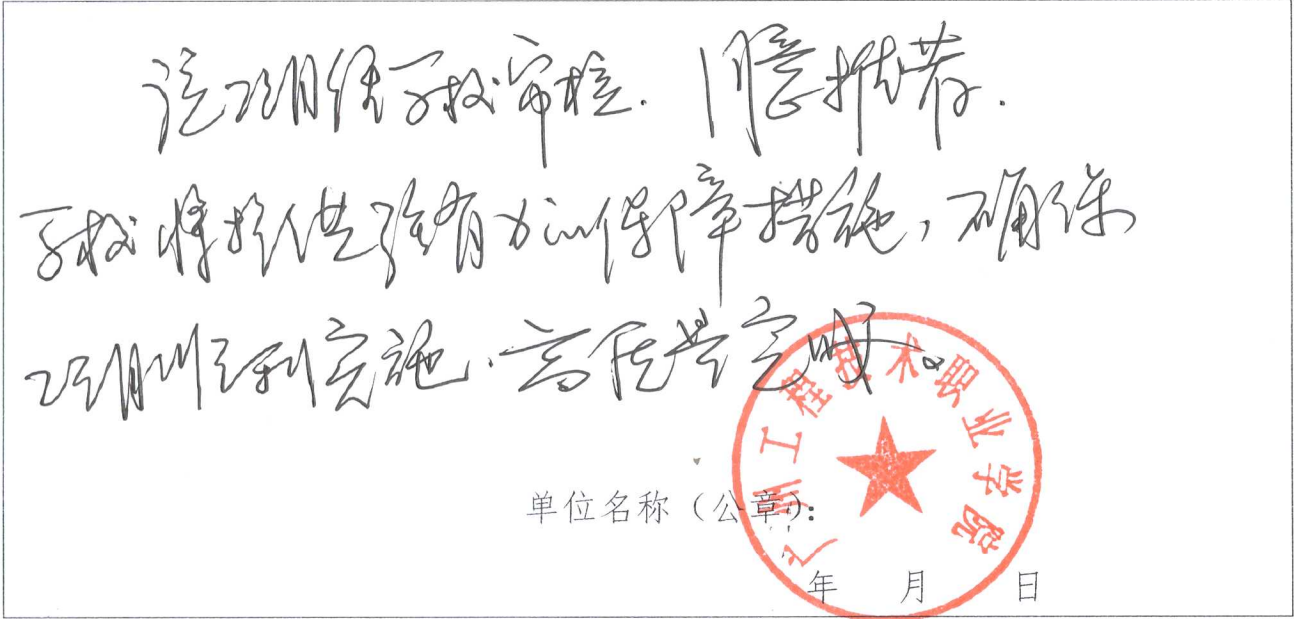 该项目经学校审核.同意推荐.
学校将提供强有力的保障措施,确保
项目顺利实施.高质量完成。
单位名称(公章):
年 月 日
广州工程技术职业学院